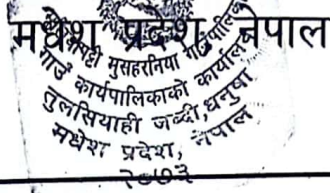 मधेश प्रदेश, नेपाल
मुसहरनिया गाउँपालिका
गाउँ कार्यपालिकाको कार्यालय
तुलसियाही जब्दी, धनुषा
मधेश प्रदेश, नेपाल
२०७३